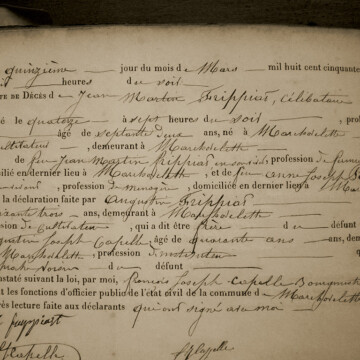 quinzième jour du mois de Mars mil huit cent cinquante
heures du soir
TE DE DÉCÈS de Jean Martin Frippiat, célibataire
é le quatorze à sept heures du soir
âgé de septante deux ans, né à Marchovelette
cultivateur, demeurant à Marchovelette
de feu Jean Martin Frippiat en son vivant, profession de
cilié en dernier lieu à Marchovelette, et de feu anne Joseph
vivant, profession de ménagère, domiciliée en dernier lieu à Mar
la déclaration faite par Augustin Frippiat
ante trois ans, demeurant à Marchovelette
sion de cultivateur, qui a dit être frère du défunt
Joseph Capelle, âgé de quarante ans, dem
Marchovelette, profession d'instituteur
du défunt
nstaté suivant la loi, par moi, Joseph Capelle Bourgmestre
nt les fonctions d'officier public de l'état civil de la commune de Marchovelette
rès lecture faite aux déclarants qui ont signé avec moi
frippiat
Capelle
Capelle